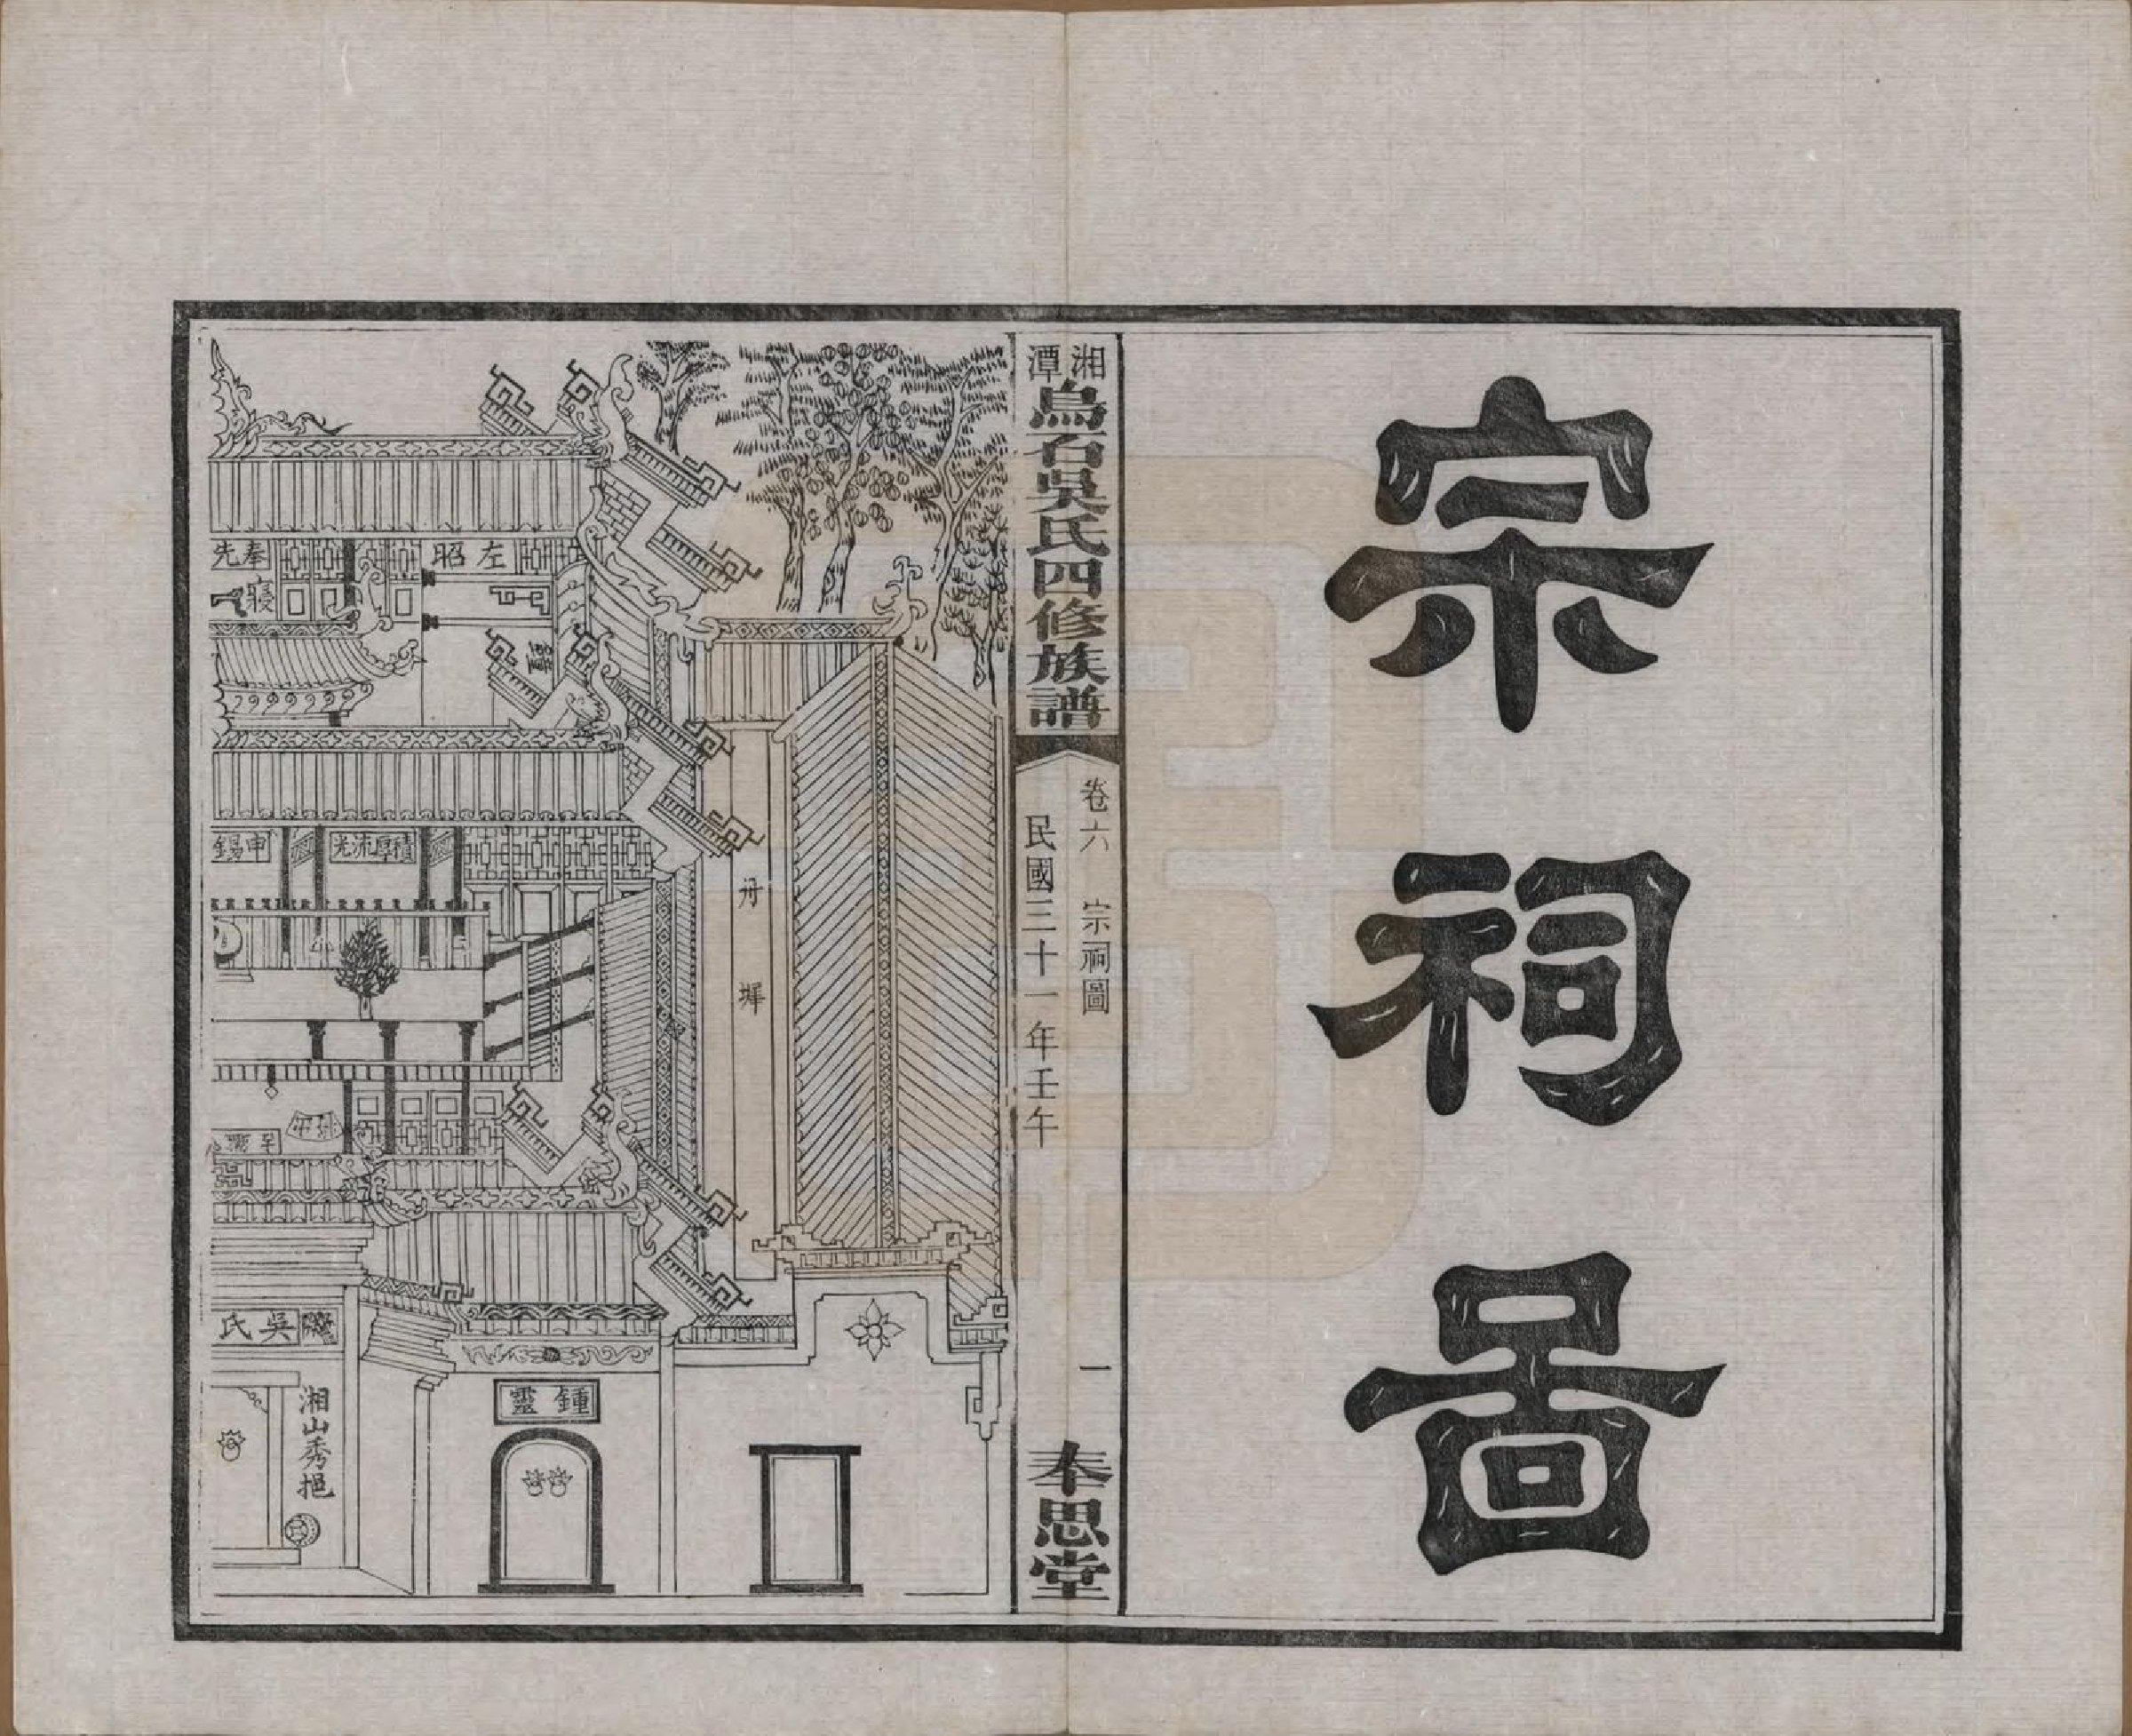 宗祠圖
湘潭烏石吳氏四修族譜
卷六 宗祠圖
一
民國三十一年壬午
奉思堂
左昭
奉先
寢
積厚流光
申錫
丹墀
吳氏
鍾靈
湘山秀挹